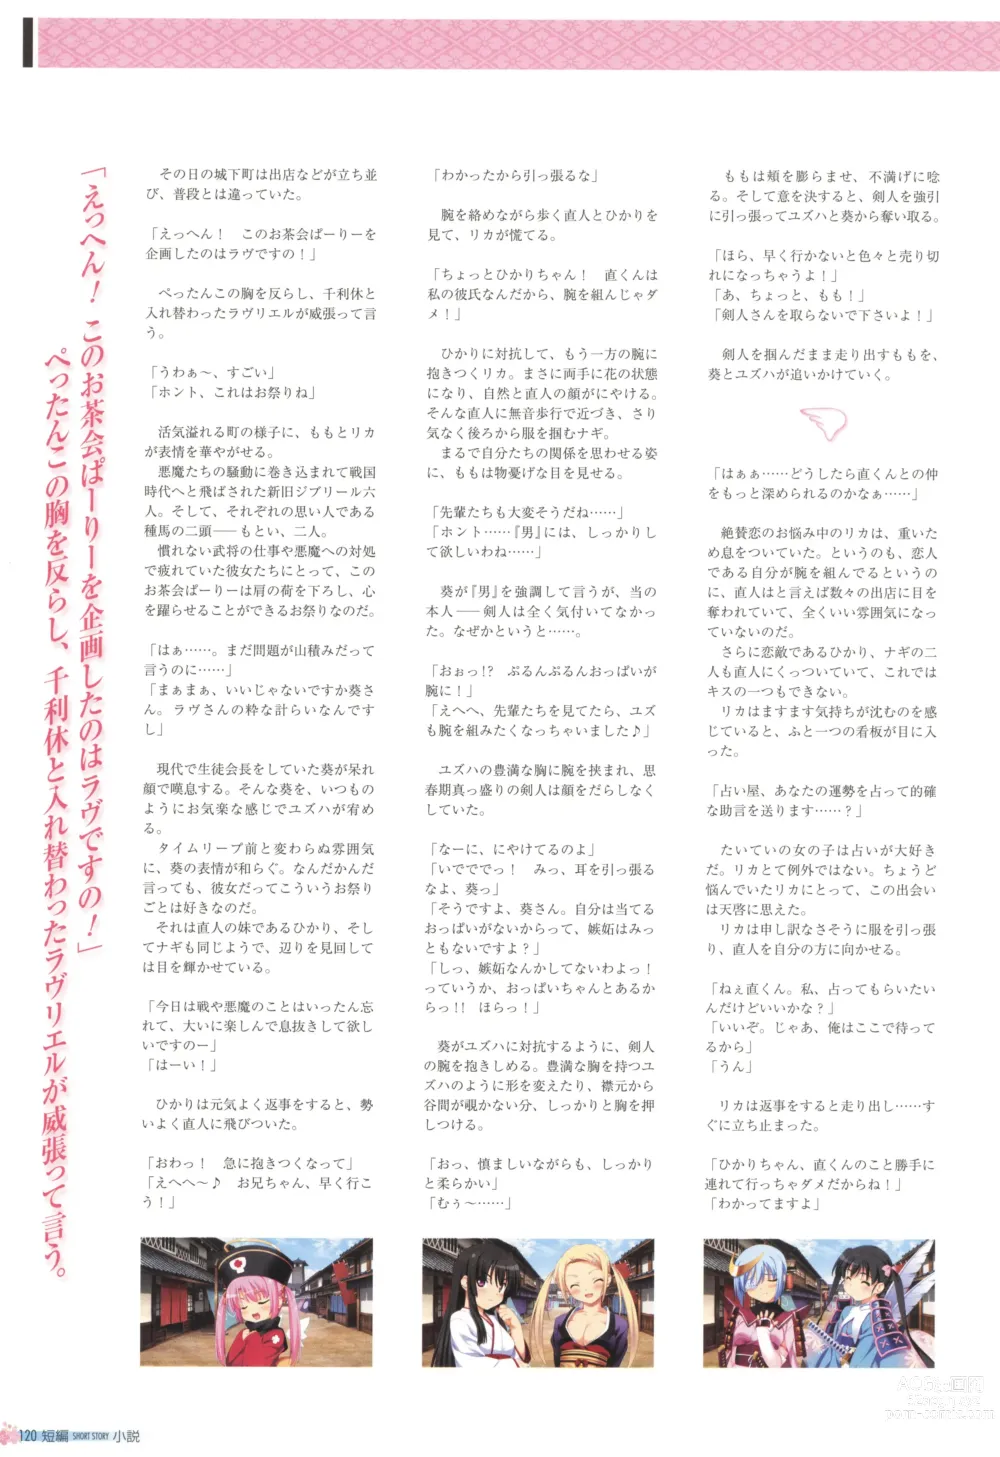 「えっへん！　このお茶会ぱーりーを企画したのはラヴですの！」
ぺったんこの胸を反らし、千利休と入れ替わったラヴリエルが威張って言う。
その日の城下町は出店などが立ち並
び、普段とは違っていた。
「えっへん！　このお茶会ぱーりーを
企画したのはラヴですの！」
ぺったんこの胸を反らし、千利休と
入れ替わったラヴリエルが威張って言
う。
「うわぁ～、すごい」
「ホント、これはお祭りね」
活気溢れる町の様子に、ももとリカ
が表情を華やがせる。
悪魔たちの騒動に巻き込まれて戦国
時代へと飛ばされた新旧ジブリール六
人。そして、それぞれの思い人である
種馬の二頭――もとい、二人。
慣れない武将の仕事や悪魔への対処
で疲れていた彼女たちにとって、この
お茶会ぱーりーは肩の荷を下ろし、心
を躍らせることができるお祭りなのだ。
「はぁ……。まだ問題が山積みだって
言うのに……」
「まぁまぁ、いいじゃないですか葵さ
ん。ラヴさんの粋な計らいなんです
し」
現代で生徒会長をしていた葵が呆れ
顔で嘆息する。そんな葵を、いつもの
ようにお気楽な感じでユズハが宥め
る。
タイムリープ前と変わらぬ雰囲気
に、葵の表情が和らぐ。なんだかんだ
言っても、彼女だってこういうお祭り
ごとは好きなのだ。
それは直人の妹であるひかり、そし
てナギも同じようで、辺りを見回して
は目を輝かせている。
「今日は戦や悪魔のことはいったん忘
れて、大いに楽しんで息抜きして欲し
いですのー」
「はーい！」
ひかりは元気よく返事をすると、勢
いよく直人に飛びついた。
「おわっ！　急に抱きつくなって」
「えへへ～♪　お兄ちゃん、早く行こ
う！」
「わかったから引っ張るな」
腕を絡めながら歩く直人とひかりを
見て、リカが慌てる。
「ちょっとひかりちゃん！　直くんは
私の彼氏なんだから、腕を組んじゃダ
メ！」
ひかりに対抗して、もう一方の腕に
抱きつくリカ。まさに両手に花の状態
になり、自然と直人の顔がにやける。
そんな直人に無音歩行で近づき、さり
気なく後ろから服を掴むナギ。
まるで自分たちの関係を思わせる姿
に、ももは物憂げな目を見せる。
「先輩たちも大変そうだね……」
「ホント……『男』には、しっかりし
て欲しいわね……」
葵が『男』を強調して言うが、当の
本人――剣人は全く気付いてなかっ
た。なぜかというと……。
「おぉっ!?　ぷるんぷるんおっぱいが
腕に！」
「えへへ、先輩たちを見てたら、ユズ
も腕を組みたくなっちゃいました♪」
ユズハの豊満な胸に腕を挟まれ、思
春期真っ盛りの剣人は顔をだらしなく
していた。
「なーに、にやけてるのよ」
「いでででっ！　みっ、耳を引っ張る
なよ、葵っ」
「そうですよ、葵さん。自分は当てる
おっぱいがないからって、嫉妬はみっ
ともないですよ？」
「しっ、嫉妬なんかしてないわよっ！
っていうか、おっぱいちゃんとあるか
らっ!!　ほらっ！」
葵がユズハに対抗するように、剣人
の腕を抱きしめる。豊満な胸を持つユ
ズハのように形を変えたり、襟元から
谷間が覗かない分、しっかりと胸を押
しつける。
「おっ、慎ましいながらも、しっかり
と柔らかい」
「むぅ～……」
ももは頬を膨らませ、不満げに唸
る。そして意を決すると、剣人を強引
に引っ張ってユズハと葵から奪い取る。
「ほら、早く行かないと色々と売り切
れになっちゃうよ！」
「あ、ちょっと、もも！」
「剣人さんを取らないで下さいよ！」
剣人を掴んだまま走り出すももを、
葵とユズハが追いかけていく。
「はぁぁ……どうしたら直くんとの仲
をもっと深められるのかなぁ……」
絶賛恋のお悩み中のリカは、重いた
め息をついていた。というのも、恋人
である自分が腕を組んでるというの
に、直人はと言えば数々の出店に目を
奪われていて、全くいい雰囲気になっ
ていないのだ。
さらに恋敵であるひかり、ナギの二
人も直人にくっついていて、これでは
キスの一つもできない。
リカはますます気持ちが沈むのを感
じていると、ふと一つの看板が目に入
った。
「占い屋、あなたの運勢を占って的確
な助言を送ります……？」
たいていの女の子は占いが大好き
だ。リカとて例外ではない。ちょうど
悩んでいたリカにとって、この出会い
は天啓に思えた。
リカは申し訳なさそうに服を引っ張
り、直人を自分の方に向かせる。
「ねぇ直くん。私、占ってもらいたい
んだけどいいかな？」
「いいぞ。じゃあ、俺はここで待って
るから」
「うん」
リカは返事をすると走り出し……す
ぐに立ち止まった。
「ひかりちゃん、直くんのこと勝手に
連れて行っちゃダメだからね！」
「わかってますよ」
120 短編 SHORT STORY 小説